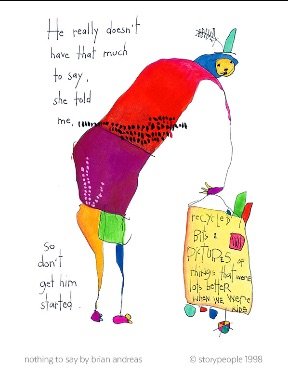 He really doesn't
have that much
to say,
she told
me,
so
don't
get him
started.
recycled
Bits &
PICTURES OF
things that were
lots better
WHEN WE WERE
KIDS
nothing to say by brian andreas
© storypeople 1998